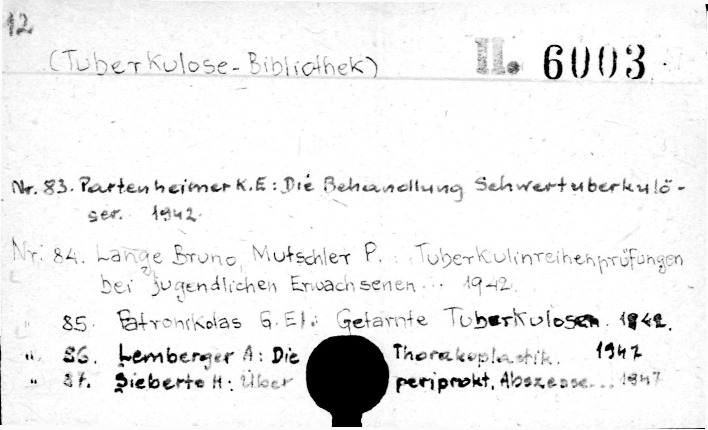 12
(Tuberkulose-Bibliothek) II. 6003
Nr. 83. Partenheimer K.E: Die Behandlung Schwertuberkulö-
ser. 1942.
Nr. 84. Lange Bruno, Mutschler P. : Tuberkulinreihenprüfungen
bei jugendlichen Erwachsenen... 1942.
" 85. Patronikolas G. El.: Getarnte Tuberkulosen. 1942.
" 86. Lemberger A: Die Thorakoplastik. 1947
" 87. Sieberto H: Über periprokt. Abszesse... 1947